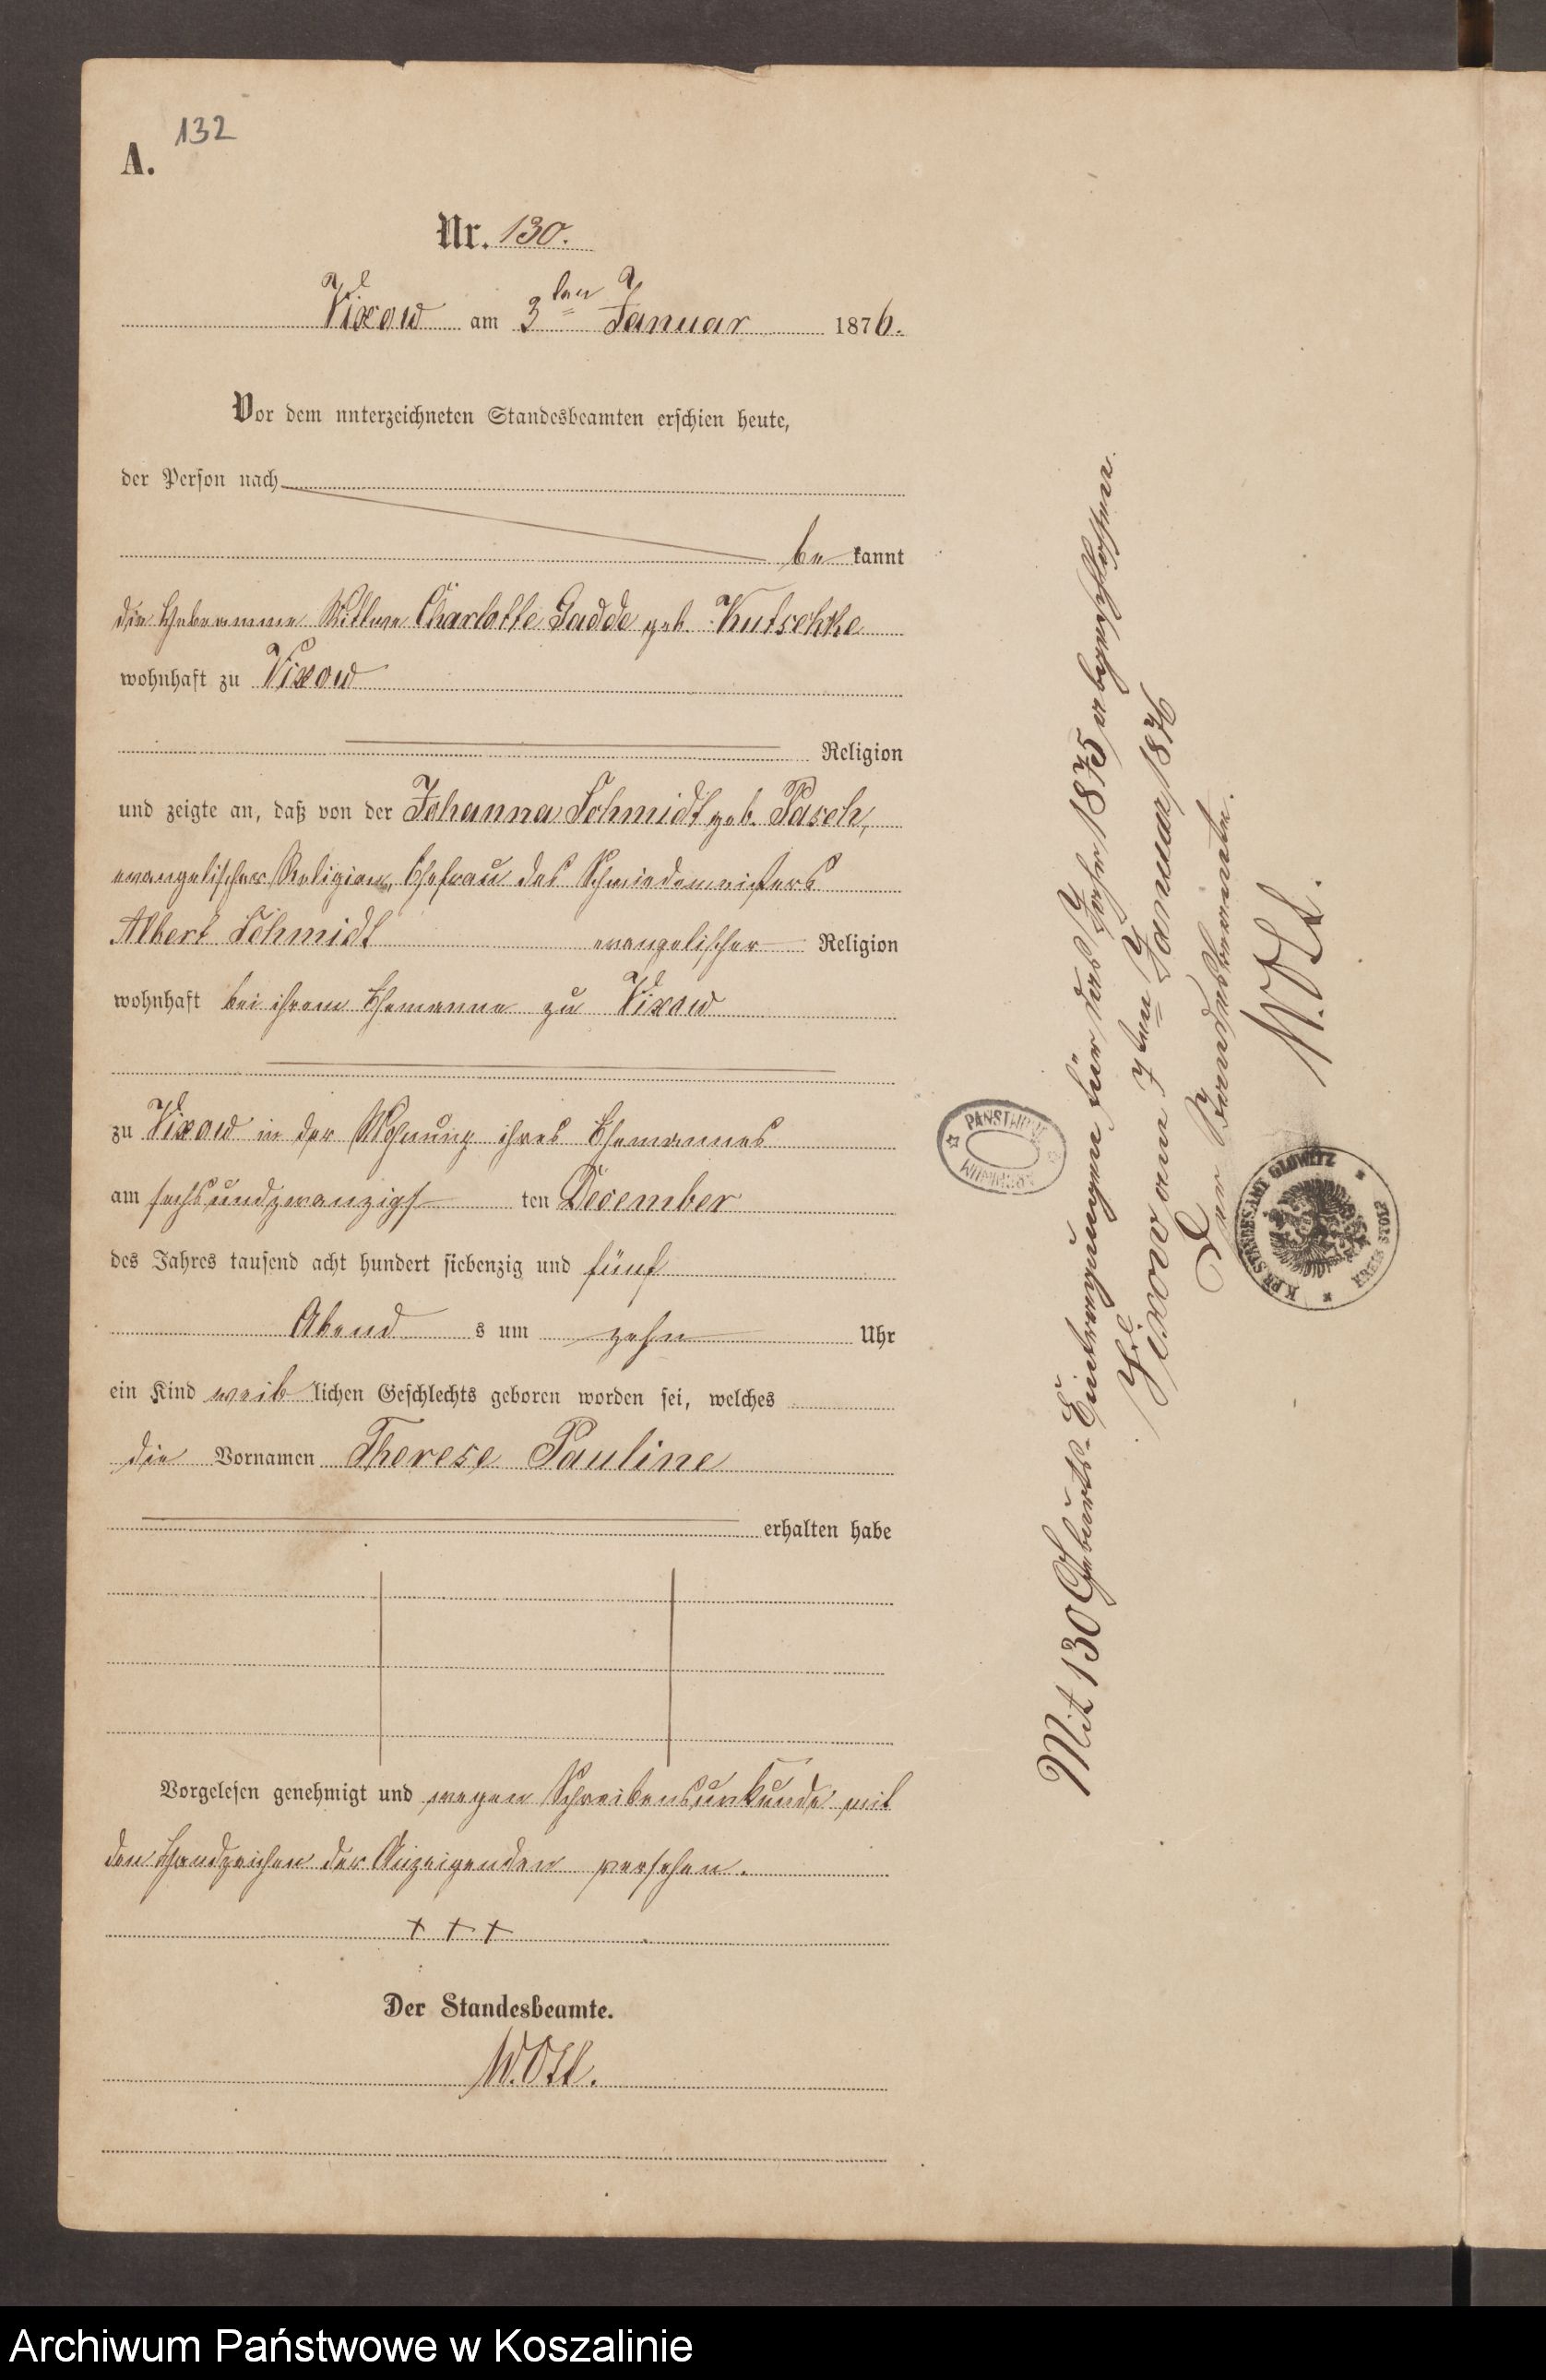 132
A.
Nr. 130.
Vixow am 3ten Januar 1876.
Vor dem unterzeichneten Standesbeamten erschien heute,
der Person nach
be kannt
die Hebeamme Wittwe Charlotte Gadde geb. Kutschke
wohnhaft zu Vixow
Religion
und zeigte an, daß von der Johanna Schmidt geb. Pasch,
evangelischer Religion, Ehefrau des Schmiedemeisters
Albert Schmidt evangelischer Religion
wohnhaft bei ihrem Ehemanne zu Vixow
zu Vixow in der Wohnung ihres Ehemannes
am sechsundzwanzigsten December
des Jahres tausend acht hundert siebenzig und fünf
Abend s um zehn Uhr
ein Kind weib lichen Geschlechts geboren worden sei, welches
die Vornamen Therese Pauline
erhalten habe
Vorgelesen genehmigt und wegen Schreibensunkunde mit
den Handzeichen der Anzeigenden versehen.
+ + +
Der Standesbeamte.
W. Ost.
Mit 130 Geburts-Eintragungen für das Jahr 1875 abgeschlossen.
Vixow am 7ten Januar 1876
Der Standesbeamte.
W. Ost.
PANSTWOWE ARCHIWUM
K. PR. STANDESAMT GLOWITZ
KREIS STOLP
Archiwum Państwowe w Koszalinie